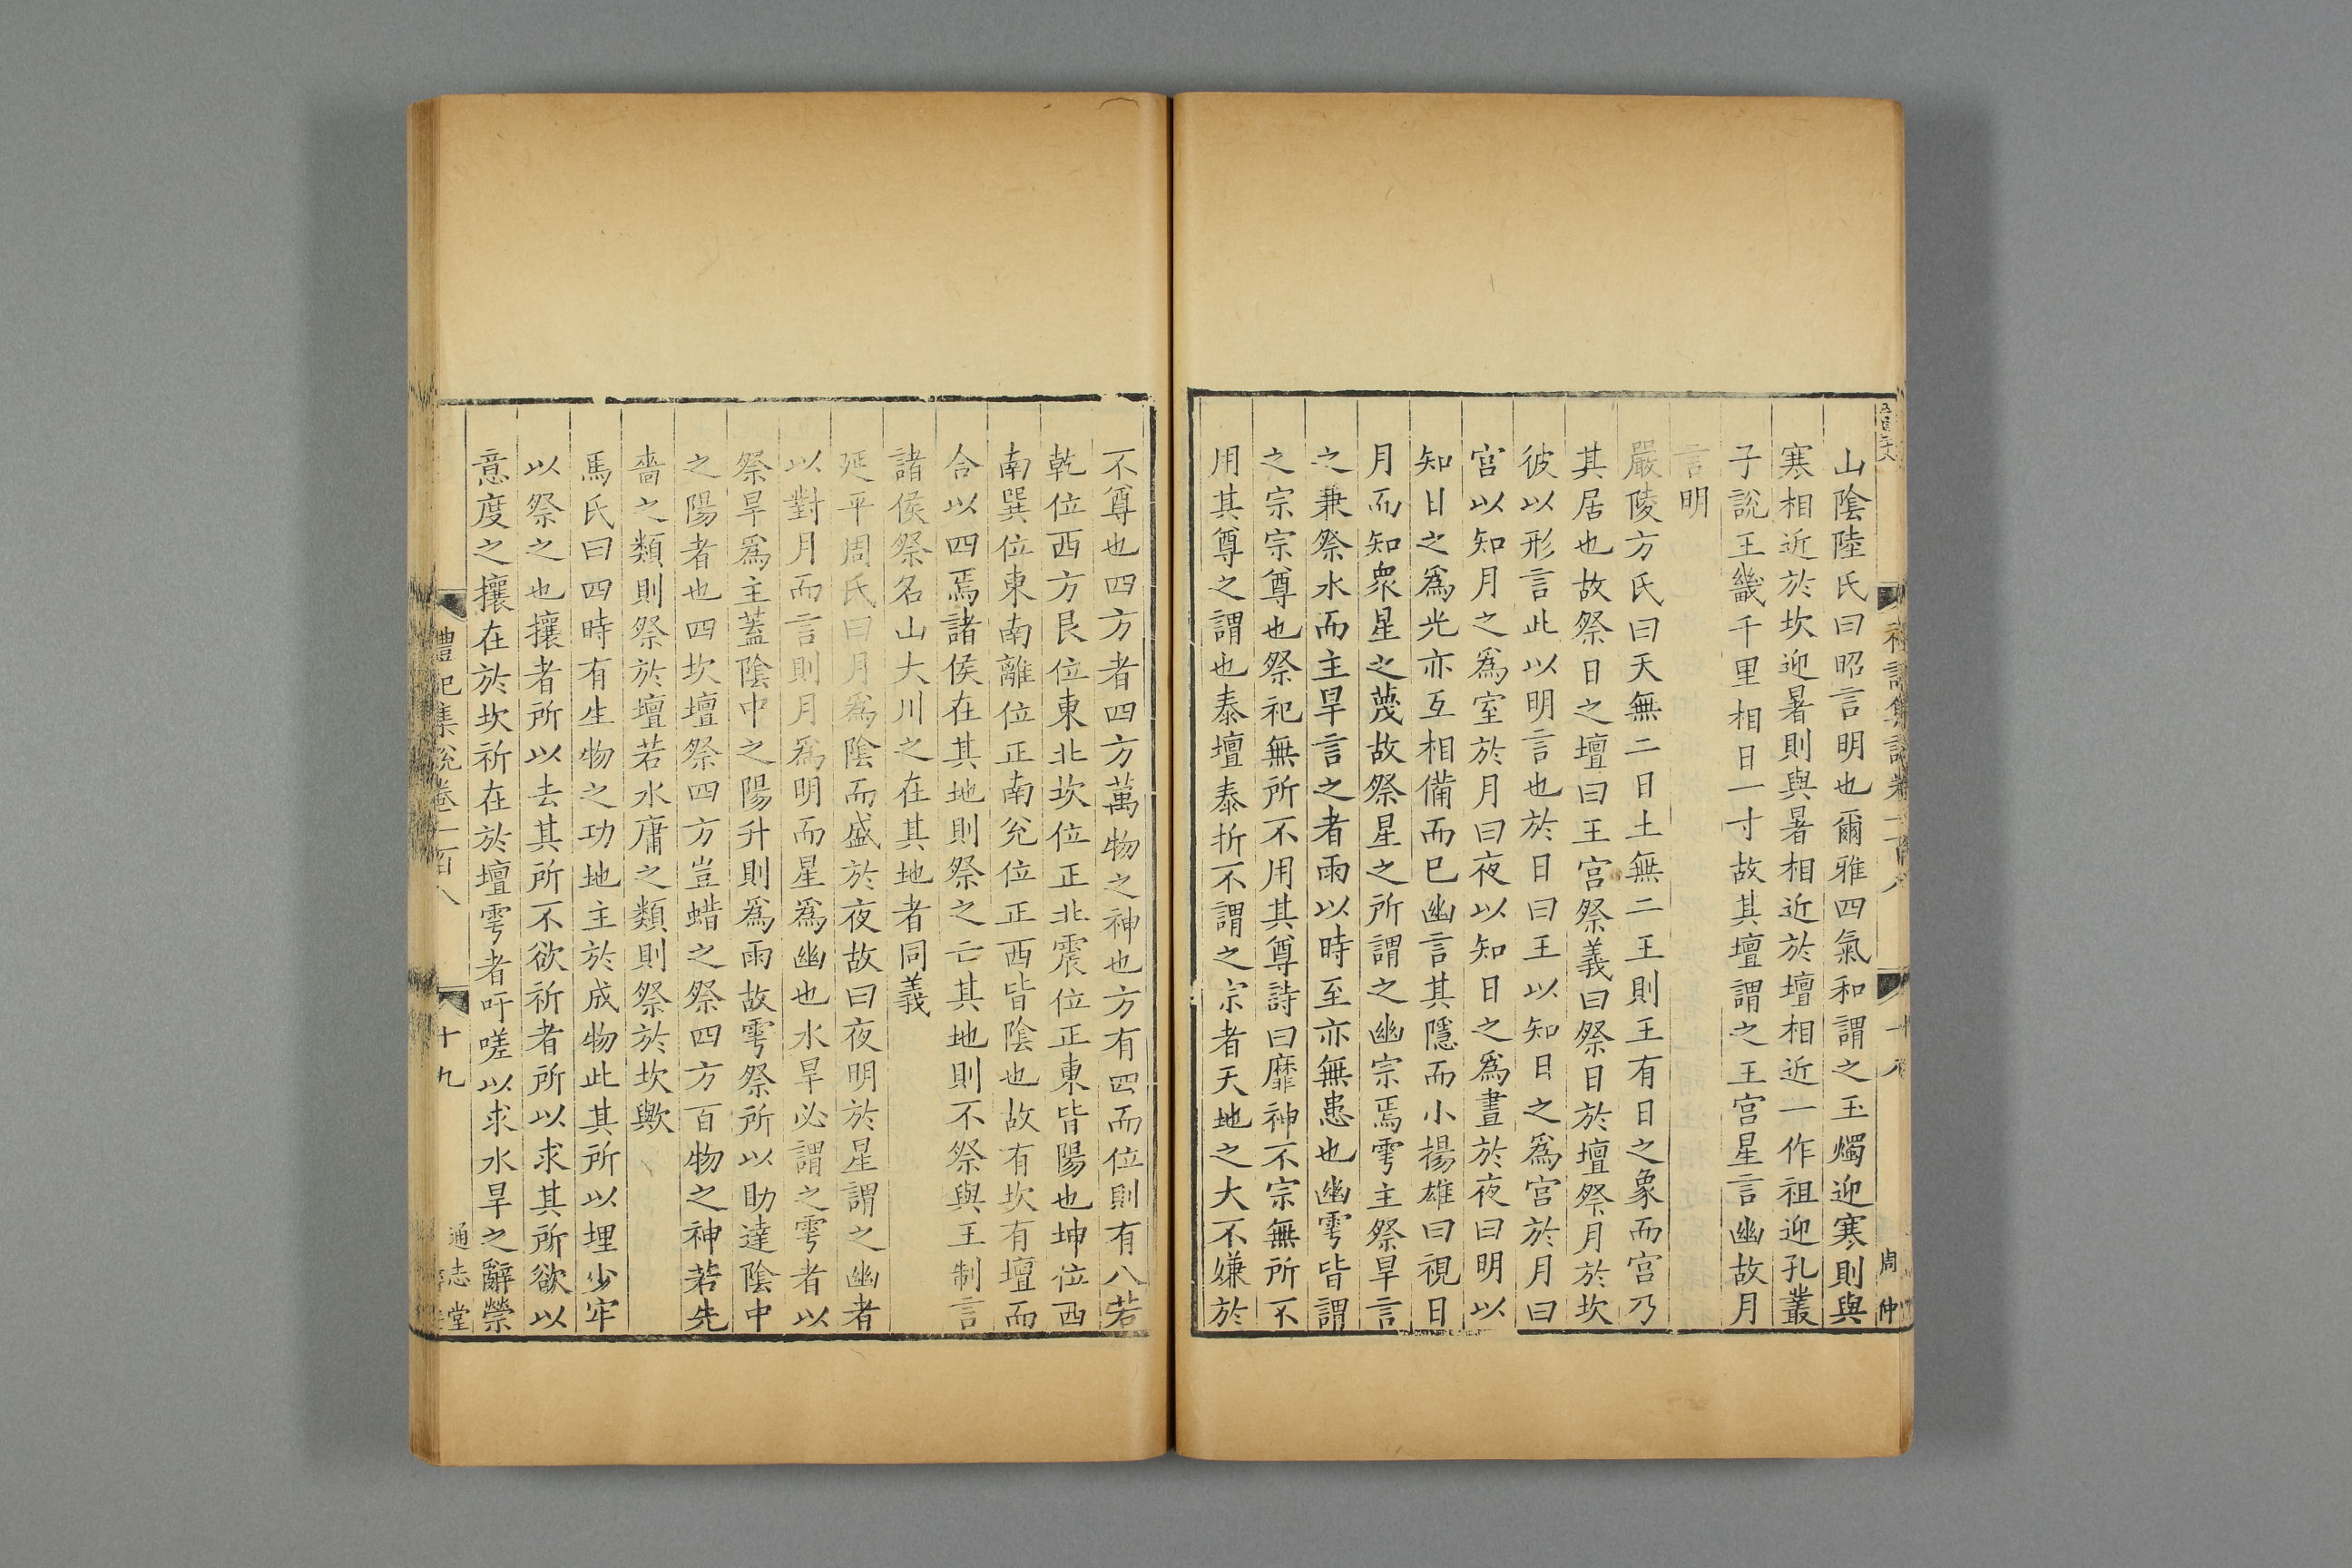 山隂陸氏曰昭言明也爾雅四氣和謂之玉燭迎寒則與
寒相近於坎迎暑則與暑相近於壇相近一作祖迎孔叢
子說王畿千里相日一寸故其壇謂之王宫星言幽故月
言明
嚴陵方氏曰天無二日土無二王則王有日之象而宫乃
其居也故祭日之壇曰王宫祭義曰祭日於壇祭月於坎
彼以形言此以明言也於日曰王以知日之爲宫於月曰
宫以知月之爲室於月曰夜以知日之爲晝於夜曰明以
知日之爲光亦互相備而已幽言其隱而小揚雄曰視日
月而知衆星之蔑故祭星之所謂之幽宗焉雩主祭旱言
之兼祭水而主旱言之者雨以時至亦無患也幽雩皆謂
之宗宗尊也祭祀無所不用其尊詩曰靡神不宗無所不
用其尊之謂也泰壇泰折不謂之宗者天地之大不嫌於
周仲
不尊也四方者四方萬物之神也方有四而位則有八若
乾位西方艮位東北坎位正北震位正東皆陽也坤位西
南巽位東南離位正南兊位正西皆陰也故有坎有壇而
合以四焉諸侯在其地則祭之亡其地則不祭與王制言
諸侯祭名山大川之在其地者同義
延平周氏曰月爲陰而盛於夜故曰夜明於星謂之幽者
以對月而言則月爲明而星爲幽也水旱必謂之雩者以
祭旱爲主蓋陰中之陽升則爲雨故雩祭所以助達陰中
之陽者也四坎壇祭四方豈蜡之祭四方百物之神若先
嗇之類則祭於壇若水庸之類則祭於坎歟
馬氏曰四時有生物之功地主於成物此其所以埋少牢
以祭之也攘者所以去其所不欲祈者所以求其所欲以
意度之攘在於坎祈在於壇雩者吁嗟以求水旱之辭禜
禮記集說卷一百八
十九
通志堂